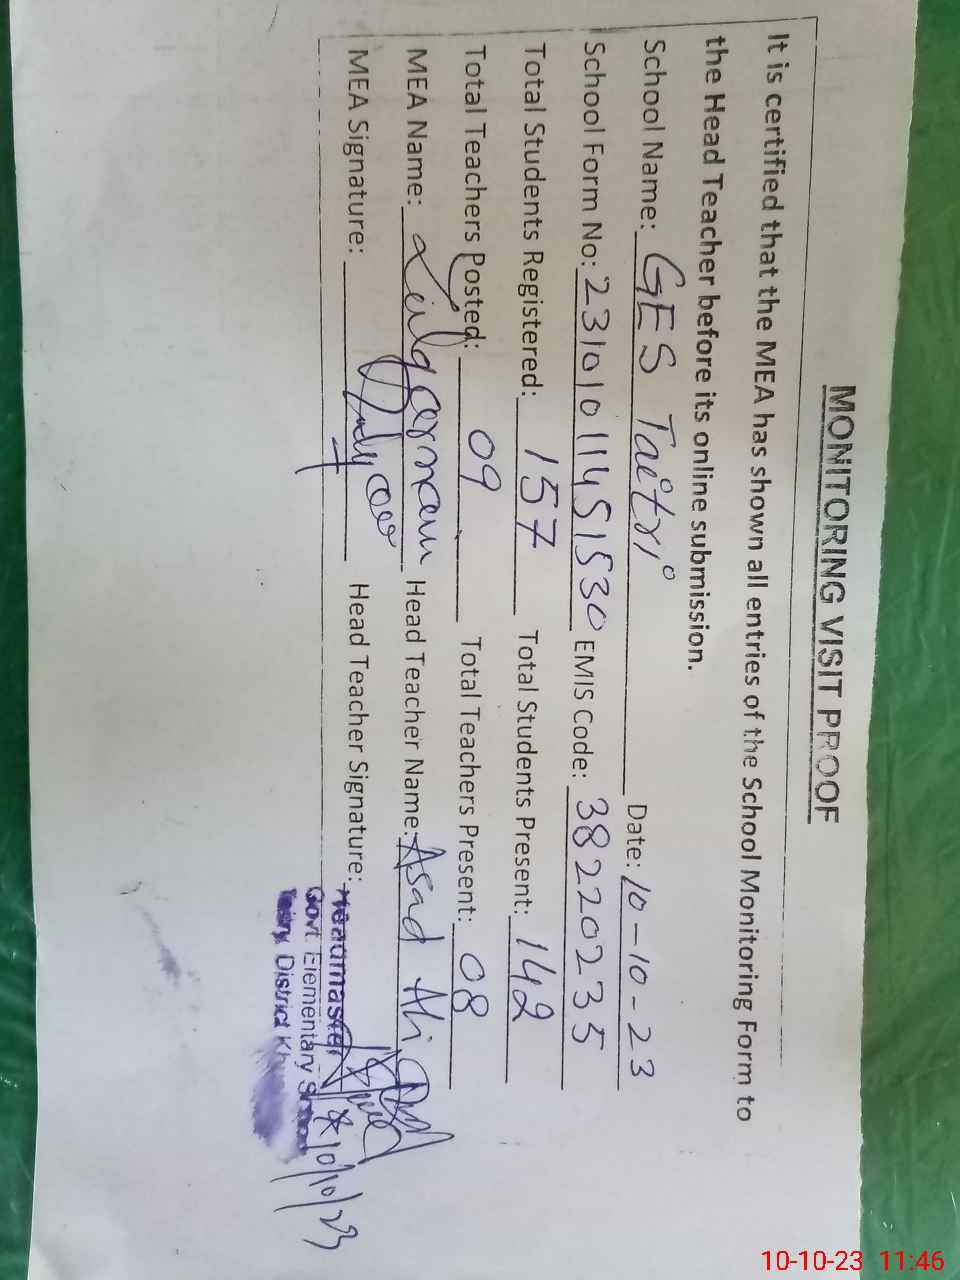 MONITORING VISIT PROOF
It is certified that the MEA has shown all entries of the School Monitoring Form to
the Head Teacher before its online submission.
School Name: GES Date: 10-10-23
School Form No: 23101011451530 EMIS Code: 38220235
Total Students Registered: 157 Total Students Present: 142
Total Teachers Posted: 09 Total Teachers Present: 08
MEA Name: Head Teacher Name: Asad Ali
MEA Signature: Head Teacher Signature:
Headmaster
Govt. Elementary School
District
10/10/23
10-10-23 11:46